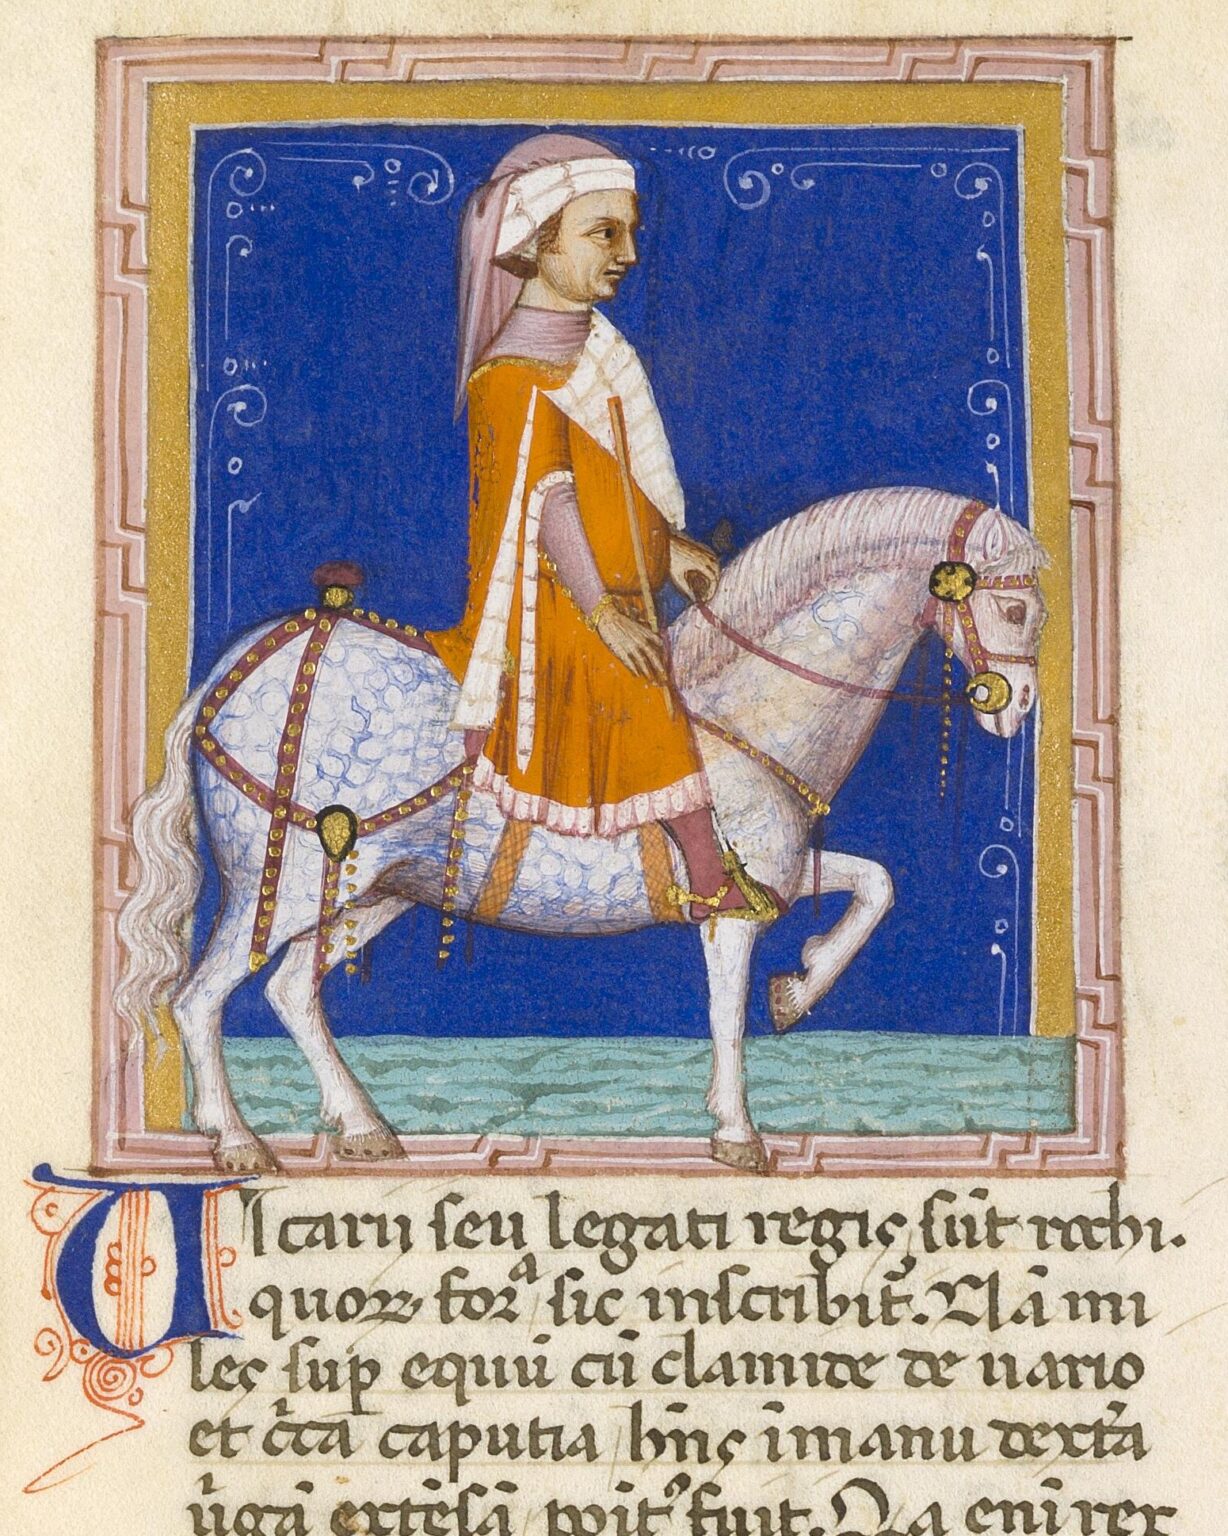 Uicarii seu legati regis sūt rochi.
quoꝝ forᵃ sic inscribit᷒. Nā mi
les suꝑ equū cū clamide de uario
et c̄cā caputia hn̄s ī manu dext̄a
ūgā extēsā poit᷒ fuit. Qa eni rex